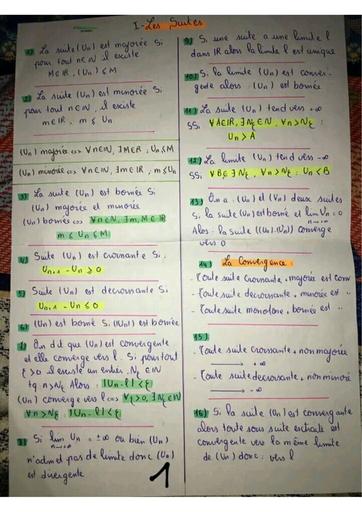 I - Les Suites
1) La suite (Un) est majorée Si
pour tout n∈ℕ il existe
M∈ℝ, (Un) ≤ M
2) La suite (Un) est minorée Si
pour tout n∈ℕ, il existe
m∈ℝ, m ≤ Un
(Un) majorée <=> ∀n∈ℕ, ∃M∈ℝ, Un≤M
(Un) minorée <=> ∀n∈ℕ, ∃m∈ℝ, m≤Un
3) La suite (Un) est bornée Si
(Un) majorée et minorée
(Un) bornée <=> ∀n∈ℕ, ∃m,M∈ℝ
m ≤ Un ≤ M
4) Suite (Un) est croissante Si
Un+1 - Un ≥ 0
5) Suite (Un) est decroissante Si
Un+1 - Un ≤ 0
6) (Un) est borné Si (|Un|) est bornée
7) On dit que (Un) est convergente
et elle converge vers l Si pour tout
ξ>0 il existe un entier Nξ ∈ℕ
tq n>Nξ Alors |Un-l|<ξ
(Un) converge vers l <=> ∀ξ>0, ∃Nξ∈ℕ
∀n>Nξ |Un-l|<ξ
8) Si lim Un = ±∞ ou bien (Un)
n→+∞
n'admet pas de limite donc (Un)
est divergente
1
9) Si une suite a une limite l
dans ℝ alors la limite l est unique
10) Si la limite (Un) est conver-
gente alors (Un) est bornée
11) La suite (Un) tend vers +∞
SSi ∀A∈ℝ, ∃Nξ∈ℕ, ∀n>Nξ
Un > A
12) La limite (Un) tend vers -∞
SSi ∀B ∃Nξ, ∀n>Nξ Un < B
13) On a (Un) et (Vn) deux suites
Si la suite (Un) est borné et lim Vn = 0
n→+∞
Alors la suite ((Un).(Vn)) converge
vers 0
14) La Convergence
- Toute suite croissante, majorée est conv
- Toute suite decroissante, minorée est ..
- Toute suite monotone, bornée est ..
15)
- Toute suite croissante, non majorée
→ +∞
- Toute suite decroissante, non minoré
→ -∞
16) Si la suite (Un) est convergante
alors toute sous suite extraite est
convergente vers la même limite
de (Un) donc vers l